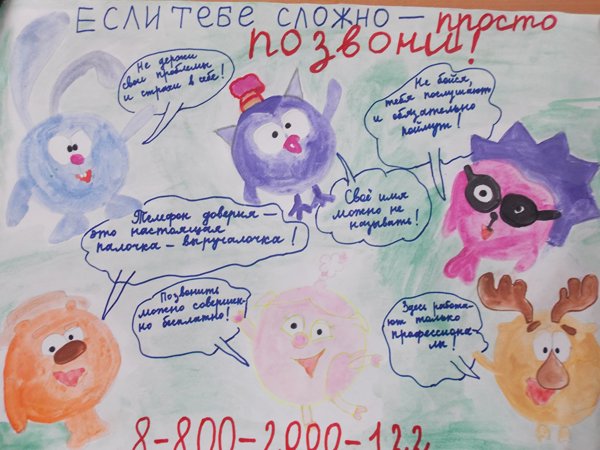 ЕСЛИ ТЕБЕ СЛОЖНО – просто
ПОЗВОНИ!
Не держи
свои проблемы
и страхи в себе!
Не бойся,
тебя послушают
и обязательно
поймут!
Своё имя
можно не
называть!
Телефон доверия –
это настоящая
палочка – выручалочка!
Позвонить
можно соверше-
но бесплатно!
Здесь работа-
ют только
профессиона-
лы!
8-800-2000-122